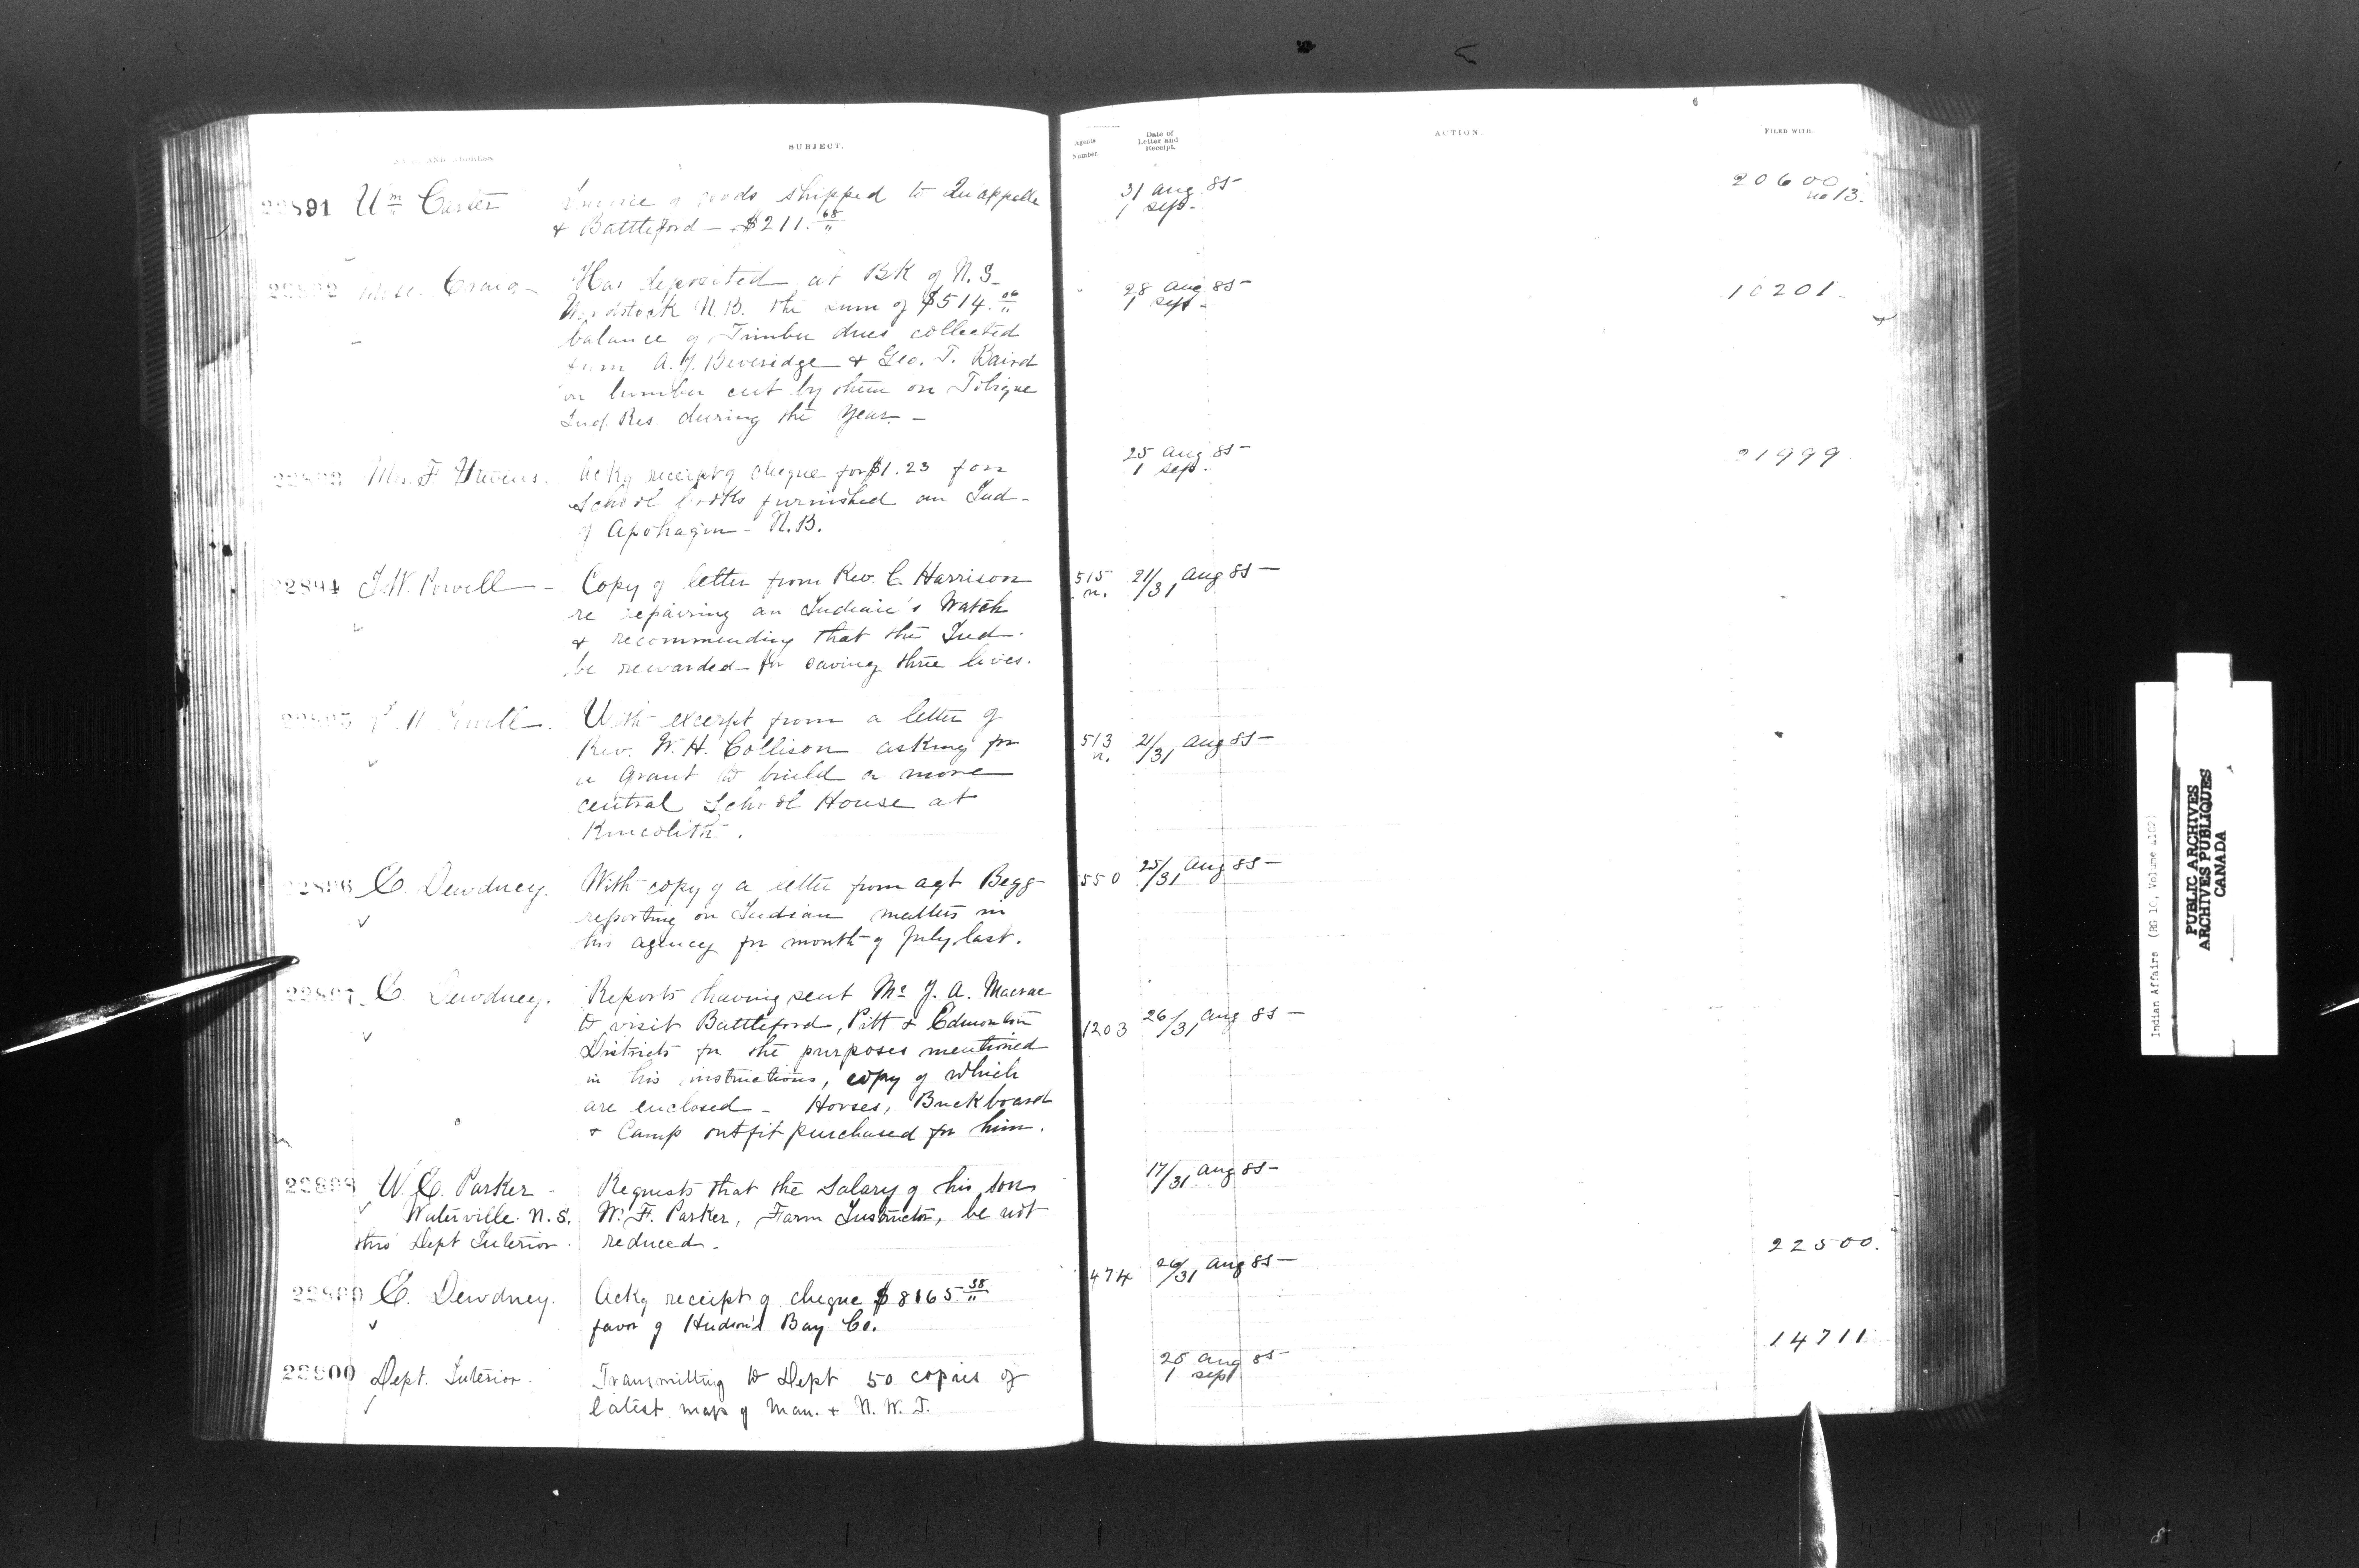 NAME AND ADDRESS.
SUBJECT.
Agents Number.
Date of Letter and Receipt.
ACTION.
FILED WITH.
22891 Wm Carter Invoice of goods shipped to Qu'appelle
& Battleford — $211.68
31 Aug 85
1 Sept
20600
no 13.
Craig — Has deposited at Bk of N.S.
Woodstock N.B. the sum of $514.06
balance of Timber dues collected
from A.J. Beveridge & Geo. T. Baird
on lumber cut by them on Tobique
Ind. Res. during the year. —
28 Aug 85
1 Sept
10201.
22893 Mrs. F. Stevens. Ackg receipt of cheque for $1.23 for
School books furnished an Ind —
of Apohagin — N.B.
25 Aug 85
1 Sept.
21999.
22894 I.W. Powell — Copy of letter from Rev. C. Harrison
re repairing an Indian's Watch
& recommending that the Ind.
be rewarded for saving three lives.
515
n.
21/31 Aug 85
22895 I.W. Powell. With excerpt from a letter of
Rev. W.H. Collison asking for
a grant to build a more
central School House at
Kincolith.
513
n.
21/31 Aug 85
22896 E. Dewdney. With copy of a letter from agt Begg
reporting on Indian matters in
his agency for month of July last.
550
25/31 Aug 85
22897 E. Dewdney. Reports having sent Mr J. A. Macrae
to visit Battleford, Pitt & Edmonton
Districts for the purposes mentioned
in his instructions, copy of which
are enclosed — Horses, Buckboard
& Camp outfit purchased for him.
1203
26/31 Aug 85
22898 W. E. Parker — Requests that the Salary of his son
Waterville N.S. W. F. Parker, Farm Instructor, be not
thro' Dept Interior. reduced —
17/31 Aug 85
22500.
22899 E. Dewdney. Ackg receipt of cheque $8165.38
favor of Hudson's Bay Co.
474
26/31 Aug 85
14711
22900 Dept. Interior. Transmitting to Dept 50 copies of
latest map of Man. & N.W.T.
1 Sept
Indian Affairs (RG 10, Volume
PUBLIC ARCHIVES
ARCHIVES PUBLIQUES
CANADA